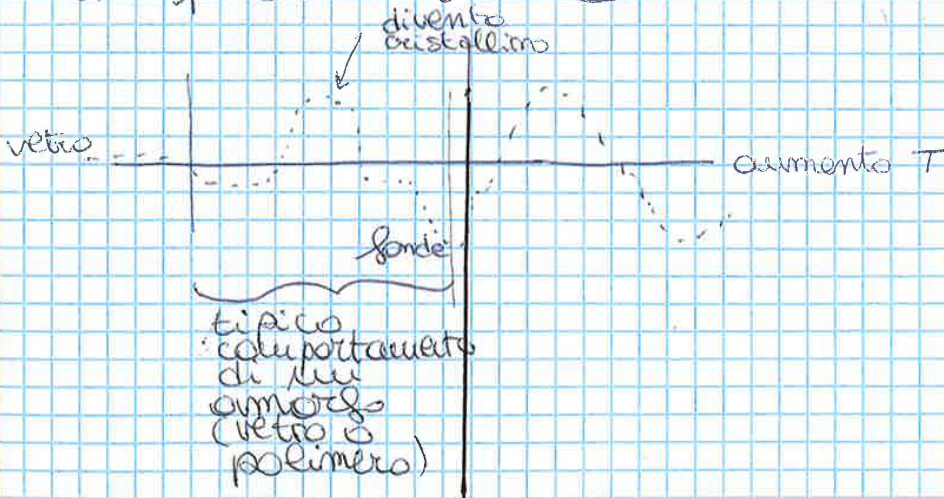 diventa
cristallino
vetro
aumento T
fonde
tipico
comportamento
di un
amorfo
(vetro o
polimero)